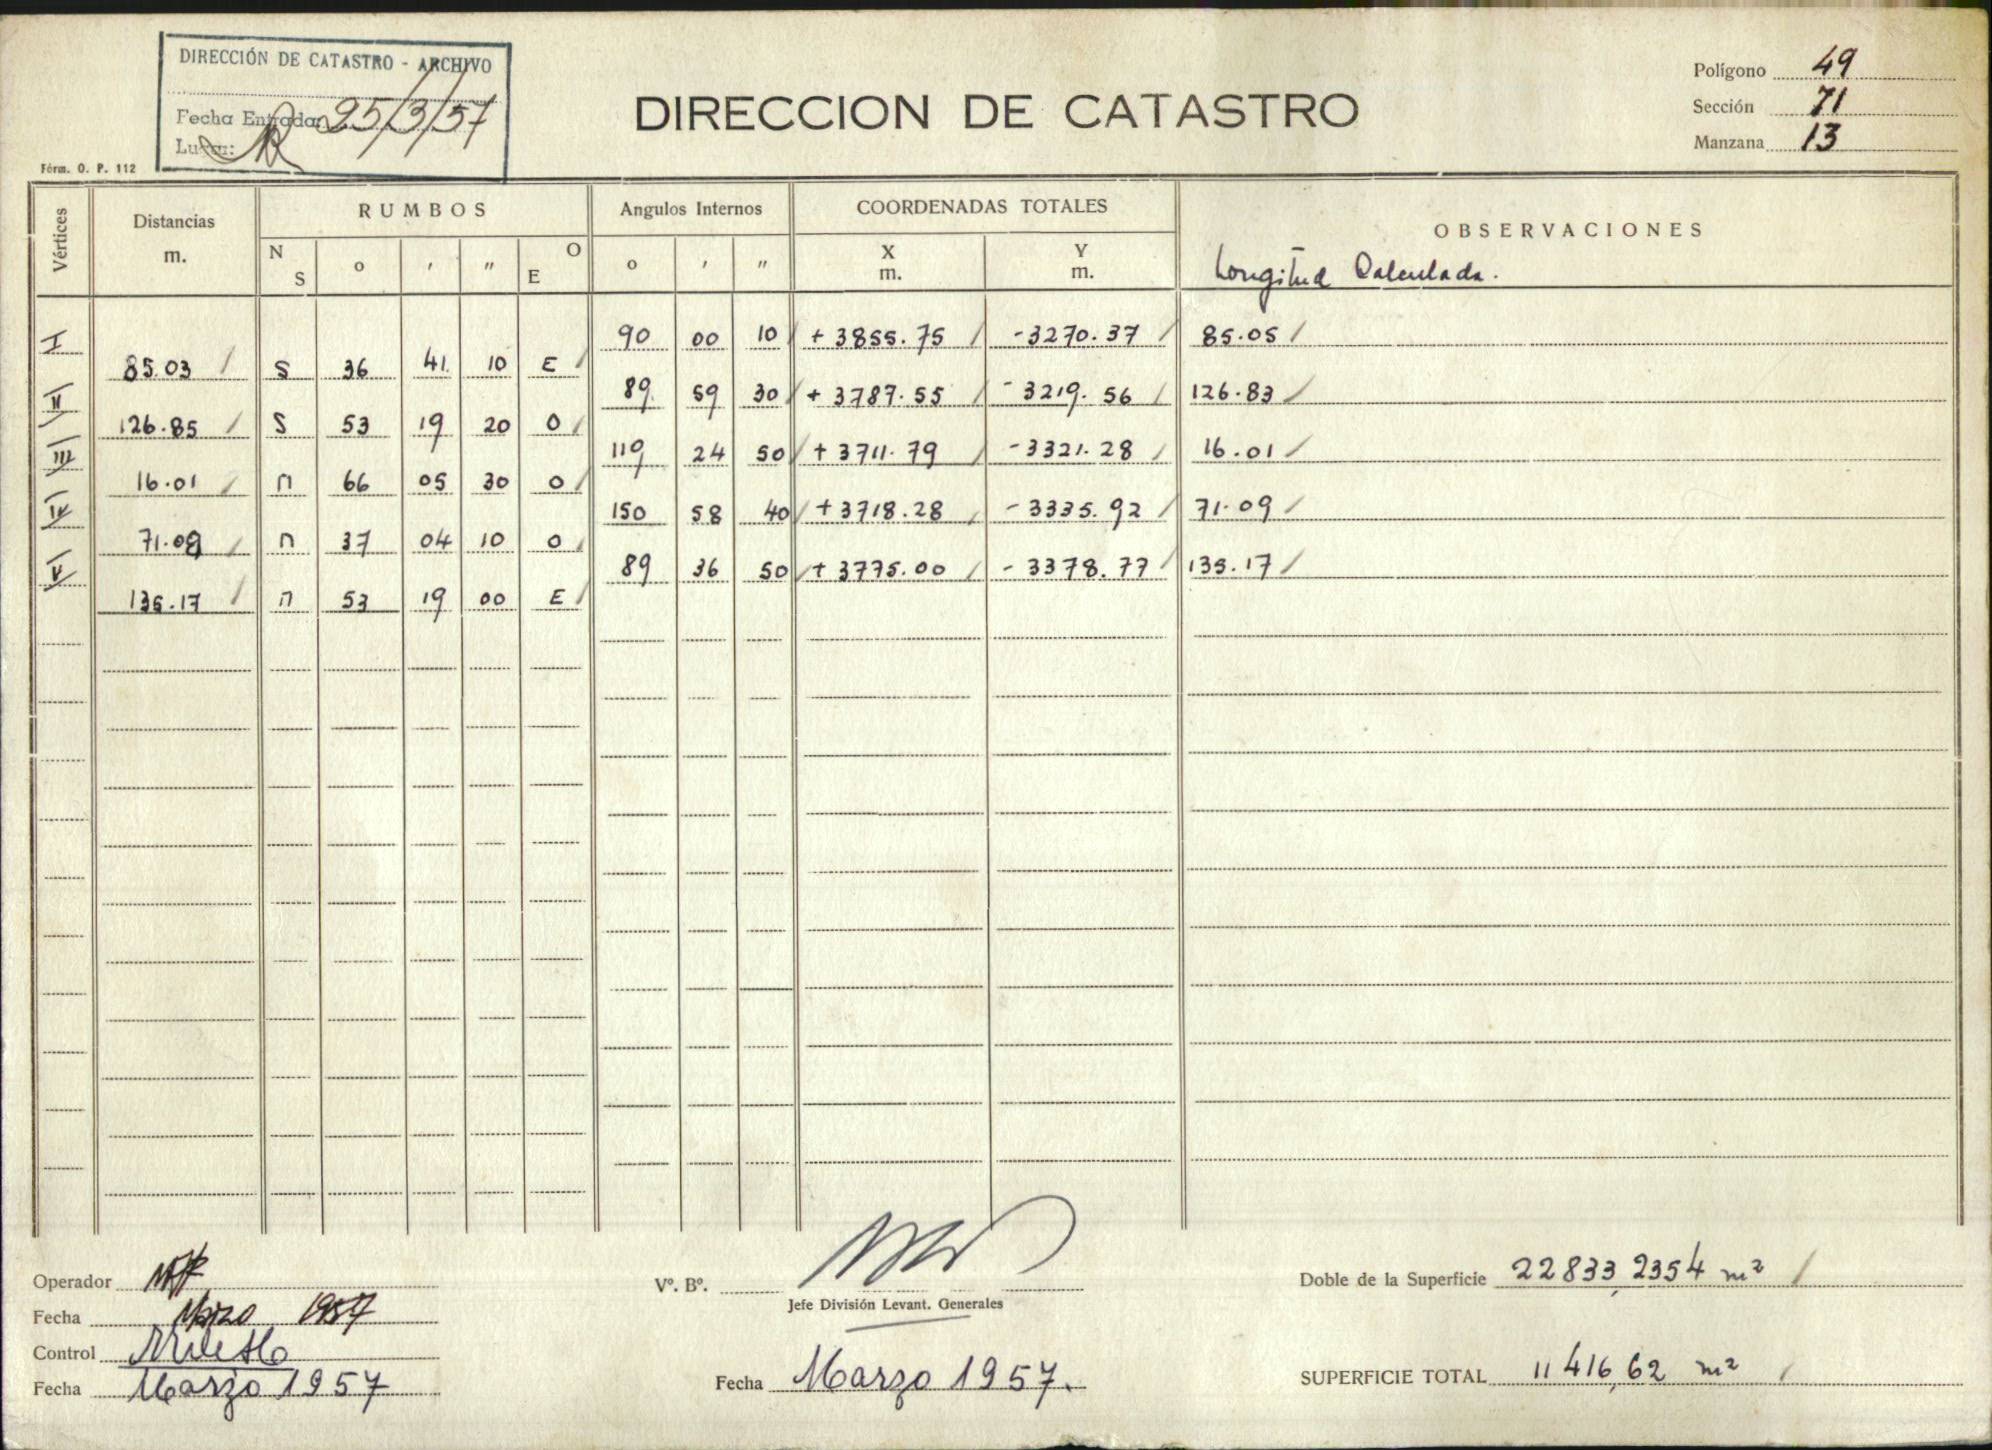 DIRECCIÓN DE CATASTRO - ARCHIVO
Fecha Entrada: 25/3/57
DIRECCION DE CATASTRO
Polígono 49
Sección 71
Manzana 13
Fórm. O. P. 112
Vértices Distancias m. RUMBOS Angulos Internos COORDENADAS TOTALES OBSERVACIONES
N S o ' " O E o ' " X m. Y m. Longitud Calculada.
I 90 00 10 + 3855.75 -3270.37 85.05
85.03 S 36 41 10 E
II 89 59 30 + 3787.55 -3219.56 126.83
126.85 S 53 19 20 O
III 110 24 50 + 3711.79 -3321.28 16.01
16.01 n 66 05 30 O
IV 150 58 40 + 3718.28 -3335.92 71.09
71.09 n 37 04 10 O
V 89 36 50 + 3775.00 -3378.77 135.17
135.17 n 53 19 00 E
Operador
Fecha Marzo 1957
Control
Fecha Marzo 1957
Vº. Bº.
Jefe División Levant. Generales
Fecha Marzo 1957.
Doble de la Superficie 22833,2354 m²
SUPERFICIE TOTAL 11416,62 m²